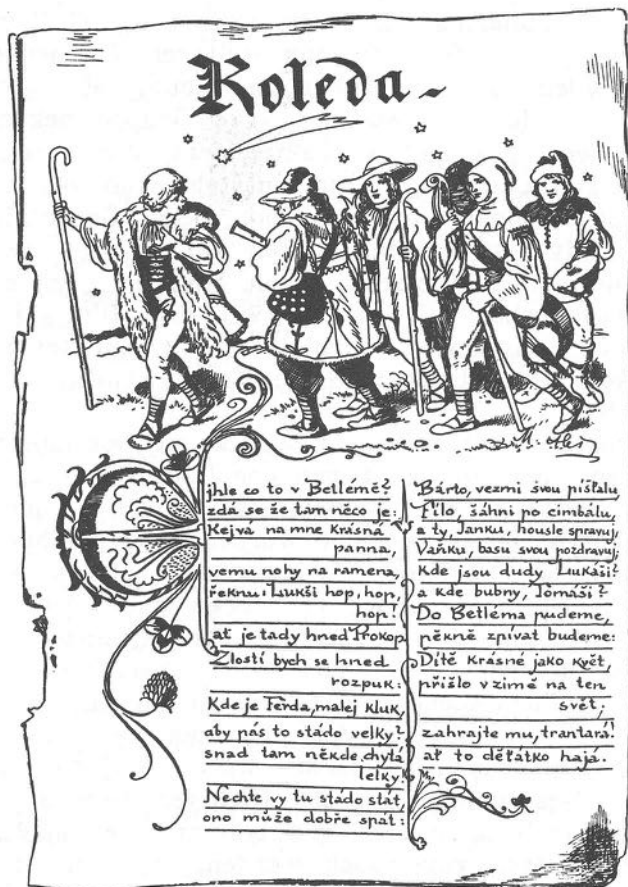 Koleda-
M. Aleš
Ejhle co to v Betlémě?
zdá se že tam něco je:
Kejvá na mne krásná
panna,
vemu nohy na ramena,
řeknu: Lukši hop, hop,
hop!
ať je tady hned Prokop
Zlostí bych se hned
rozpuk:
Kde je Ferda, malej kluk,
aby pás to stádo velky?
snad tam někde chytá
lelky!
Nechte vy tu stádo stát,
ono může dobře spát:
Bárto, vezmi svou píšťalu
Filo, šáhni po cimbálu,
a ty, Janku, housle spravuj,
Vaňku, basu svou pozdravuj;
Kde jsou dudy Lukáši?
a kde bubny, Tomáši?
Do Betléma pudeme,
pěkně zpívat budeme:
Dítě krásné jako květ,
přišlo v zimě na ten
svět;
zahrajte mu, trantará!
ať to děťátko hajá.